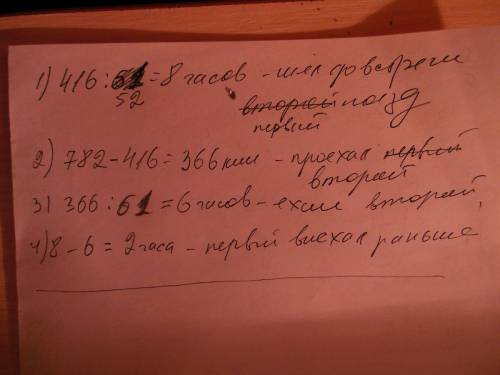 1) 416:52=8 часов - шёл до встречи
второй поезд
первый
2) 782-416=366 км - проехал первый
второй
3) 366:61=6 часов - ехал второй
4) 8-6=2 часа - первый выехал раньше